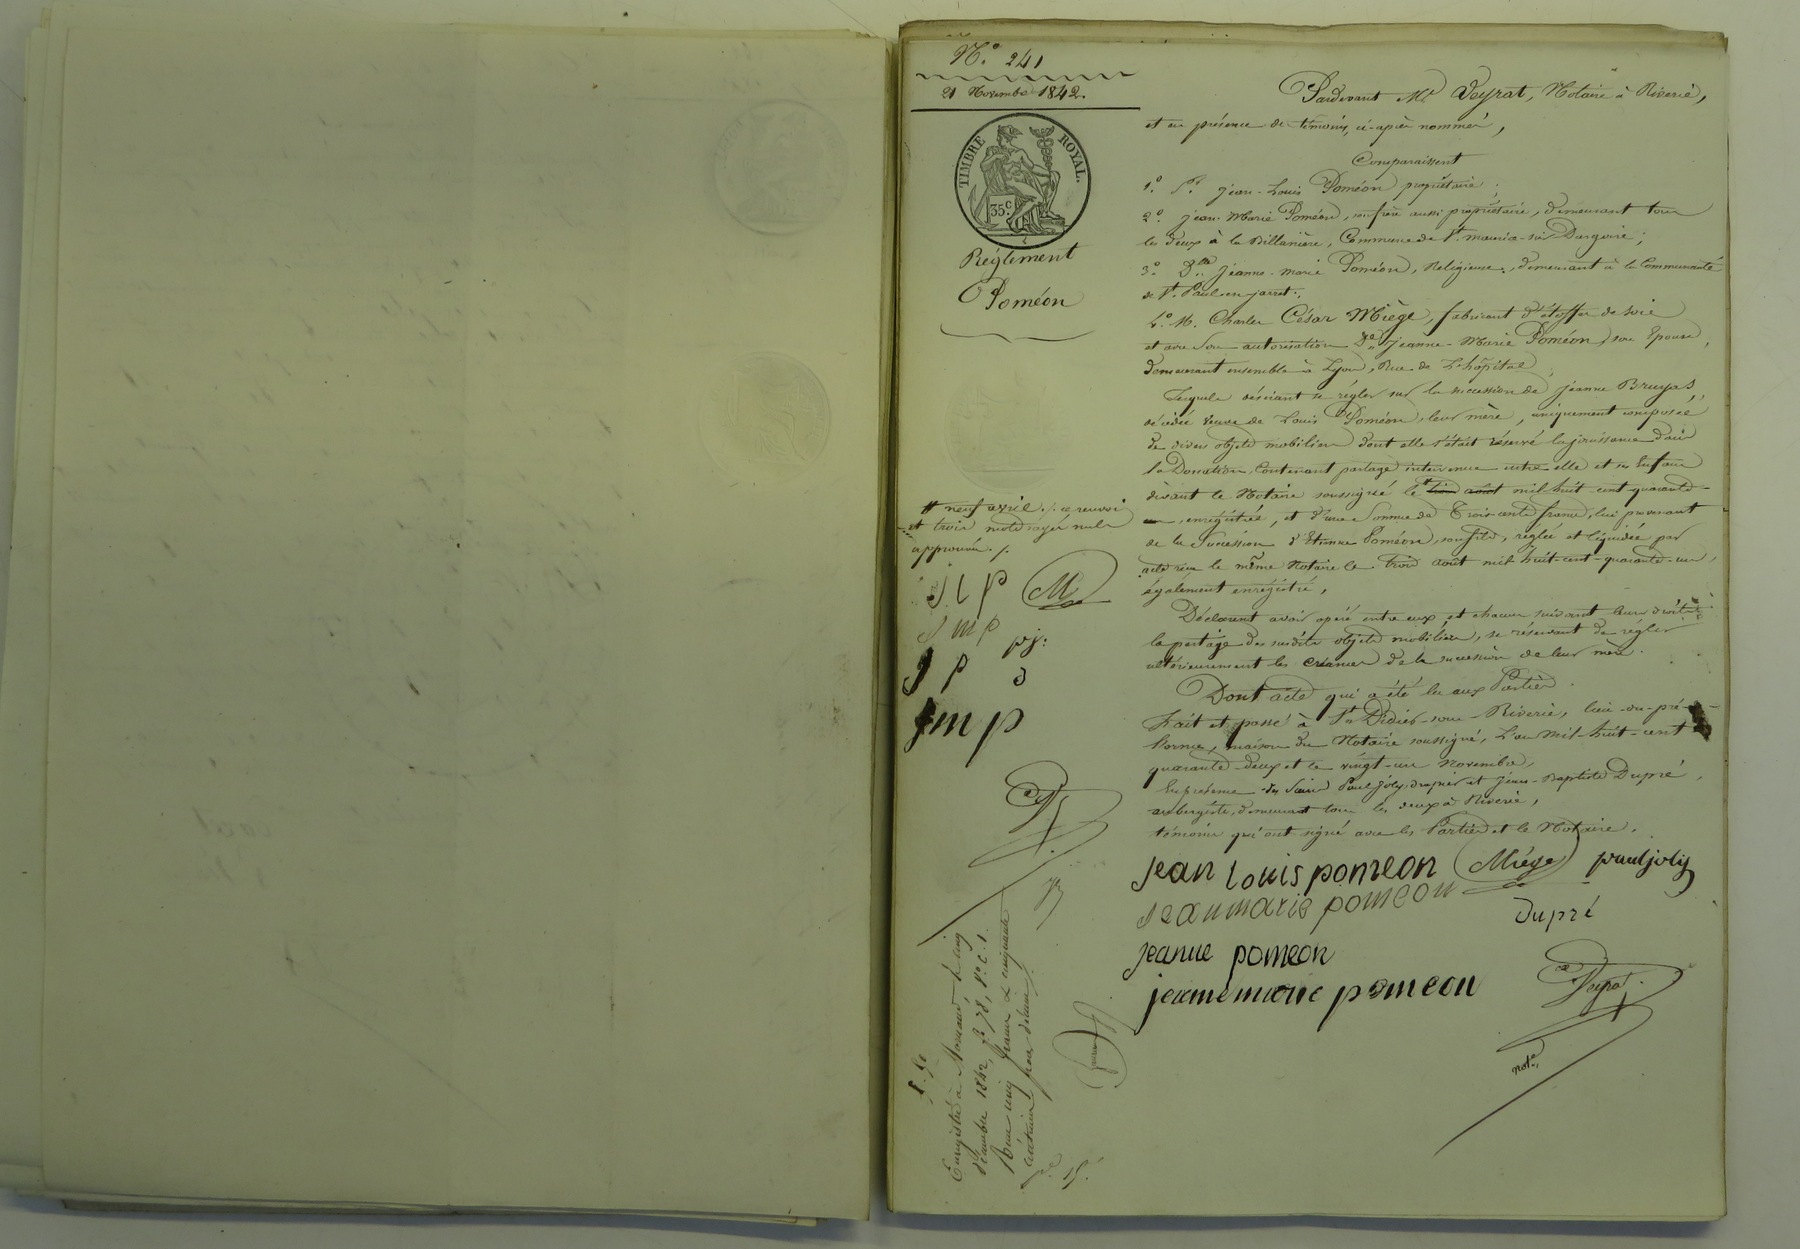 N.° 241
21 Novembre 1842.
TIMBRE ROYAL.
35 c
Réglement
Poméon
Pardevant Me Veyrat, Notaire à Riverie,
et en présence de témoins, ci-après nommés,
Comparaissent
1.° Sr. Jean-Louis Poméon propriétaire;
2.° Jean-Marie Poméon, son frère aussi propriétaire, demeurant tous
les deux à la Billanière, Commune de St. Maurice-sur-Dargoire;
3.° Dlle Jeanne-Marie Poméon, Religieuse, demeurant à la Communauté
de St. Paul-en-jarret.
4.° M. Charles César Miège, fabricant d'étoffes de soie
et avec son autorisation De Jeanne-Marie Poméon, son Epouse,
demeurant ensemble à Lyon, Rue de L'hôpital,
Lesquels désirant se régler sur la succession de Jeanne Bruyas,
décédée veuve de Louis Poméon, leur mère, uniquement composée
de divers objets mobiliers dont elle s'était réservé la jouissance dans
la Donation Contenant partage intervenue entre elle et ses Enfans
devant le Notaire soussigné le trois août mil-huit-cent-quarante-
un, enregistrée, et d'une Somme de Trois-cents francs, lui provenant
de la Succession d'Etienne Poméon, son fils, réglée et liquidée par
acte reçu le même Notaire le trois août mil-huit-cent-quarante-un,
également enregistré,
Déclarent avoir opéré entre eux et chacun suivant leurs droits
le partage des susdits objets mobiliers, se réservant de régler
ultérieurement les créances de la succession de leur mère.
Dont acte qui a été lu aux Parties.
Fait et passé à St. Didier-sous-Riverie, lieu-du-pré-
maison du Notaire soussigné, L'an mil-huit-cent
quarante-deux et le vingt-un Novembre,
En présence des Sieurs Paul Joly, drapier et Jean-Baptiste Dupré,
aubergiste, demeurant tous les deux à Riverie,
témoins qui ont signé avec les Parties et le Notaire.
neuf avril ./. ce renvoi
et trois mots rayés nuls
approuvés ./.
j l p M
j m p pj:
j p d
jm p
jean louis pomeon Miége paul joly
jean marie pomeon
dupré
jeanne pomeon
jeanne marie pomeon
Veyrat
not.
5.50
Enregistré à Mornant, le cinq
décembre 1842, f.° 78, R.° c. 1.
Reçu cinq francs & cinquante
centimes pour décime